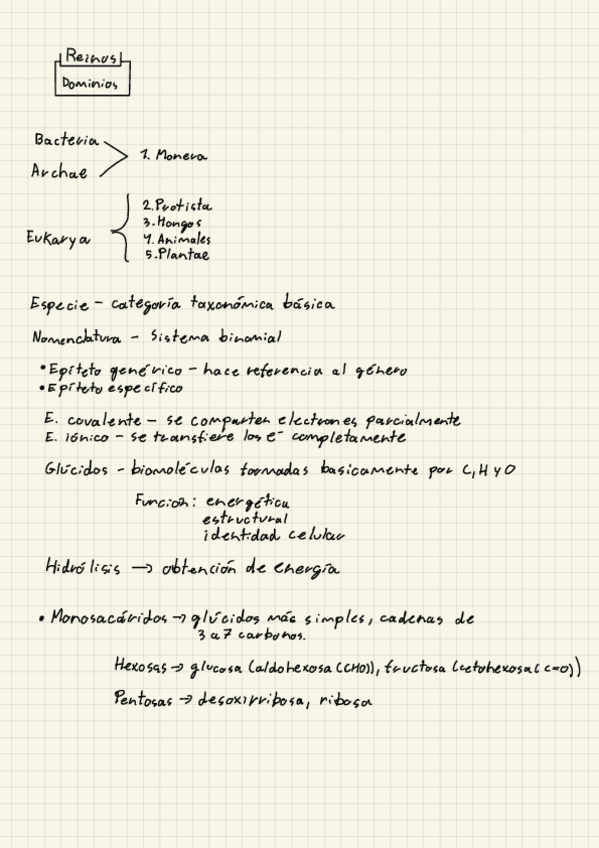 Reinos
Dominios
Bacteria
Archae
1. Monera
Eukarya
2. Protista
3. Hongos
4. Animales
5. Plantae
Especie - categoría taxonómica básica
Nomenclatura - Sistema binomial
• Epíteto genérico - hace referencia al género
• Epíteto específico
E. covalente - se comparten electrones parcialmente
E. iónico - se transfiere los e⁻ completamente
Glúcidos - biomoléculas formadas basicamente por C, H y O
Función: energética
estructural
identidad celular
Hidrólisis → obtención de energía
• Monosacáridos → glúcidos más simples, cadenas de
3 a 7 carbonos.
Hexosas → glucosa (aldohexosa (CHO)), fructosa (cetohexosa (c=o))
Pentosas → desoxirribosa, ribosa